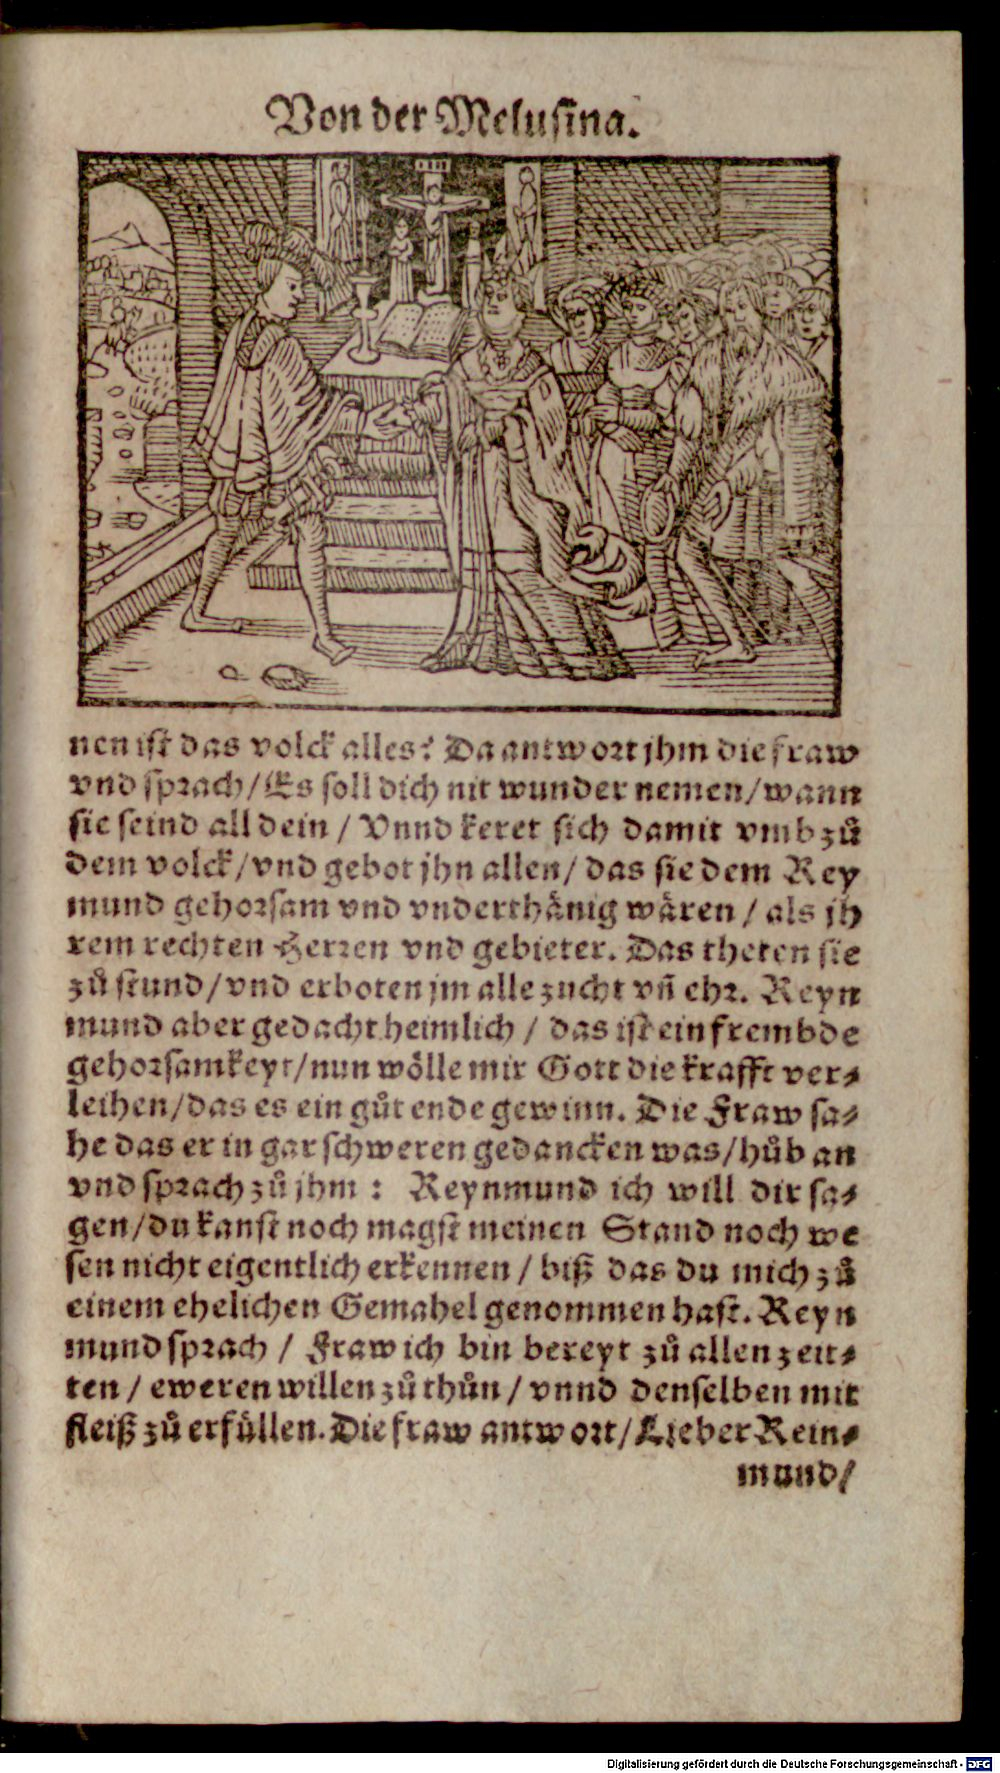 Von der Melusina.
nen ist das volck alles? Da antwort jhm die fraw
vnd sprach / Es soll dich nit wunder nemen / wann
sie seind all dein / Vnnd keret sich damit vmb zů
dem volck / vnd gebot jhn allen / das sie dem Rey
mund gehorsam vnd vnderthänig wären / als jh
rem rechten Herren vnd gebieter. Das theten sie
zů stund / vnd erboten jm alle zucht vn̄ ehr. Reyn
mund aber gedacht heimlich / das ist ein frembde
gehorsamkeyt / nun wölle mir Gott die krafft ver⸗
leihen / das es ein gůt ende gewinn. Die Fraw sa⸗
he das er in gar schweren gedancken was / hůb an
vnd sprach zů jhm : Reynmund ich will dir sa⸗
gen / du kanst noch magst meinen Stand noch we
sen nicht eigentlich erkennen / biß das du mich zů
einem ehelichen Gemahel genommen hast. Reyn
mund sprach / Fraw ich bin bereyt zů allen zeit⸗
ten / eweren willen zů thůn / vnnd denselben mit
fleiß zů erfüllen. Die fraw antwort / Lieber Rein⸗
mund /
Digitalisierung gefördert durch die Deutsche Forschungsgemeinschaft - DFG